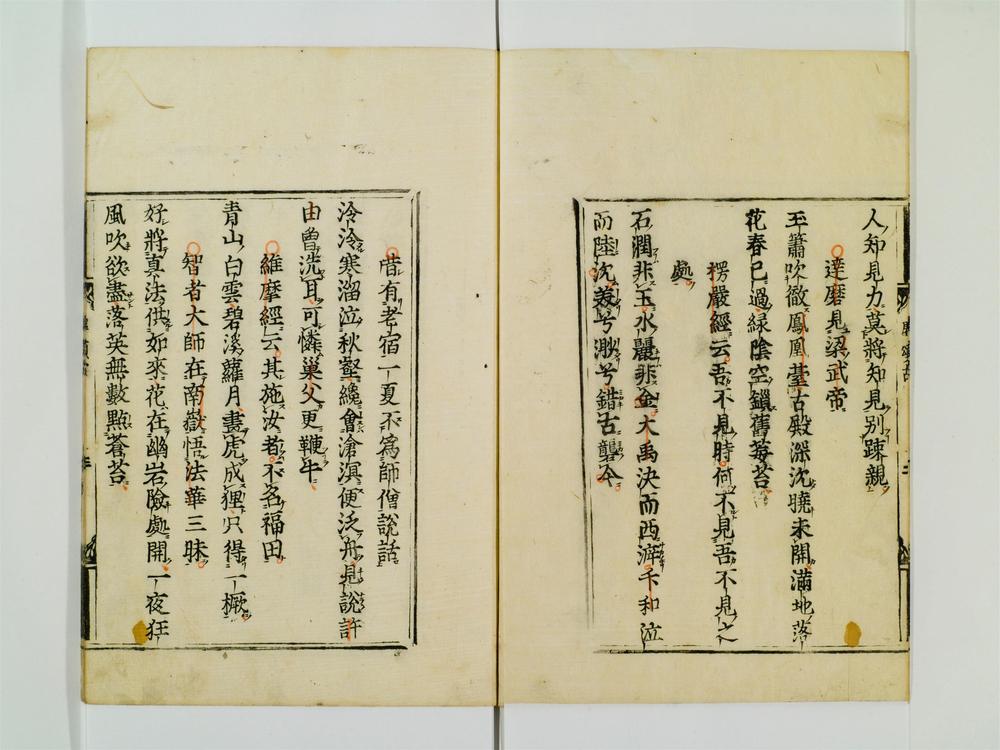 人知見力莫將知見別踈親
達磨見梁武帝
玉簫吹徹鳳凰臺古殿深沈曉未開滿地落
花春已過緑陰空鎖舊莓苔
楞嚴經云吾不見時何不見吾不見之
處
石潤非玉水麗非金大禹決而西游卞和泣
而陸沈羨兮渺兮錯古礱今
昔有老宿一夏不爲師僧說話
泠泠寒溜泣秋蛩纔會滄溟便泛舟見說許
由曾洗耳可憐巢父更鞭牛
維摩經云其施汝者不名福田
青山白雲碧溪蘿月畫虎成狸只得一橛
智者大師在南嶽悟法華三昧
好將真法供如來花在幽岩險處開一夜狂
風吹欲盡落英無數點蒼苔